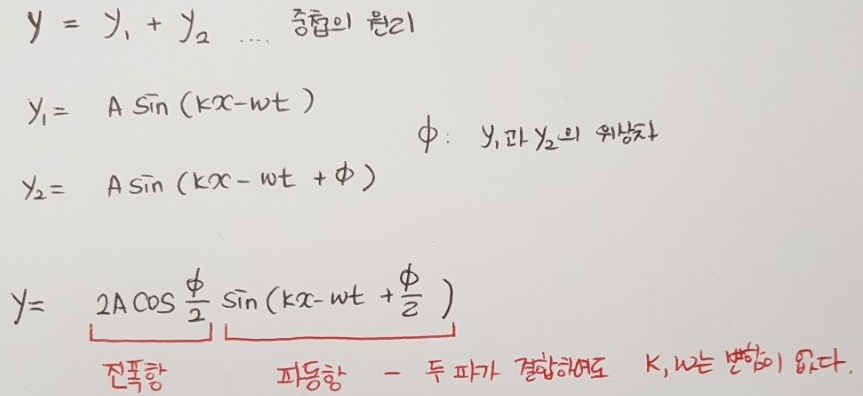 y = y₁ + y₂ .... 중첩의 원리
y₁ = A sin (kx-wt)
ϕ: y₁과 y₂의 위상차
y₂ = A sin (kx-wt + ϕ)
y = 2A cos ϕ/2 sin (kx-wt + ϕ/2)
진폭항 파동항 - 두 파가 결합하여도 k, w는 변함이 없다.